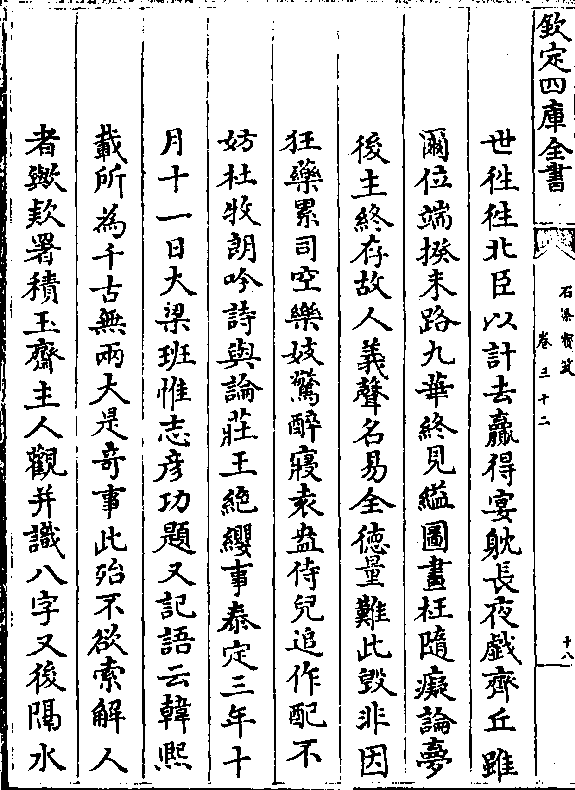 欽定四庫全書
石渠寳笈
卷三十二
十八
世徃徃北臣以計去贏得宴躭長夜戯齊丘雖
爾位端揆末路九華終見縊圖畫枉隨癡論夢
後主終存故人義聲名易全徳量難此毁非因
狂藥累司空樂妓驚醉寢袁盎侍兒追作配不
妨杜牧朗吟詩與論莊王絶纓事泰定三年十
月十一日大梁班惟志彦功題又記語云韓熈
載所為千古無兩大是竒事此殆不欲索解人
者歟欵署積玉齋主人觀并識八字又後隔水